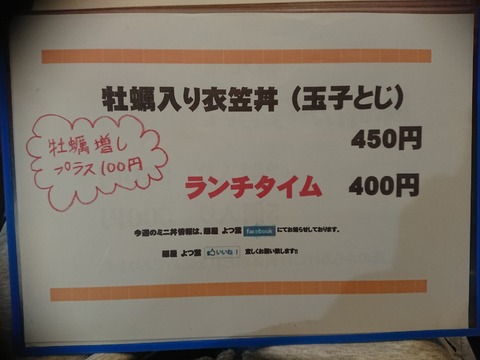 牡蠣入り衣笠丼（玉子とじ）
450円
牡蠣増し
プラス100円
ランチタイム 400円
今週のミニ丼情報は、麺屋 よつ葉 facebook にてお知らせしております。
麺屋 よつ葉 いいね！ 宜しくお願い致します!!